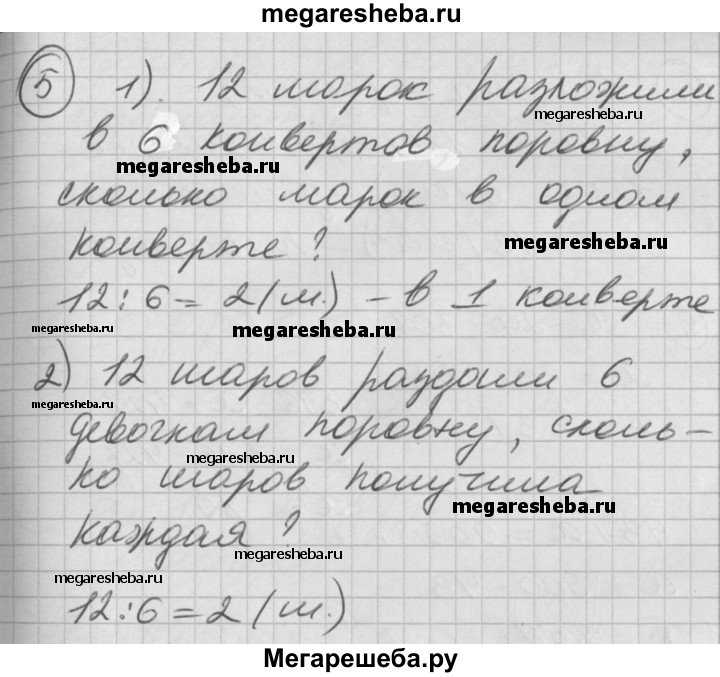 megaresheba.ru
5 1) 12 марок разложили
megaresheba.ru
в 6 конвертов поровну,
megaresheba.ru
сколько марок в одном
конверте?
megaresheba.ru
12:6=2(м.) - в 1 конверте
megaresheba.ru
megaresheba.ru
2) 12 шаров раздали 6
megaresheba.ru
девочкам поровну, сколь-
megaresheba.ru
ко шаров получила
megaresheba.ru
каждая?
megaresheba.ru
megaresheba.ru
12:6=2(ш.)
Мегарешеба.ру